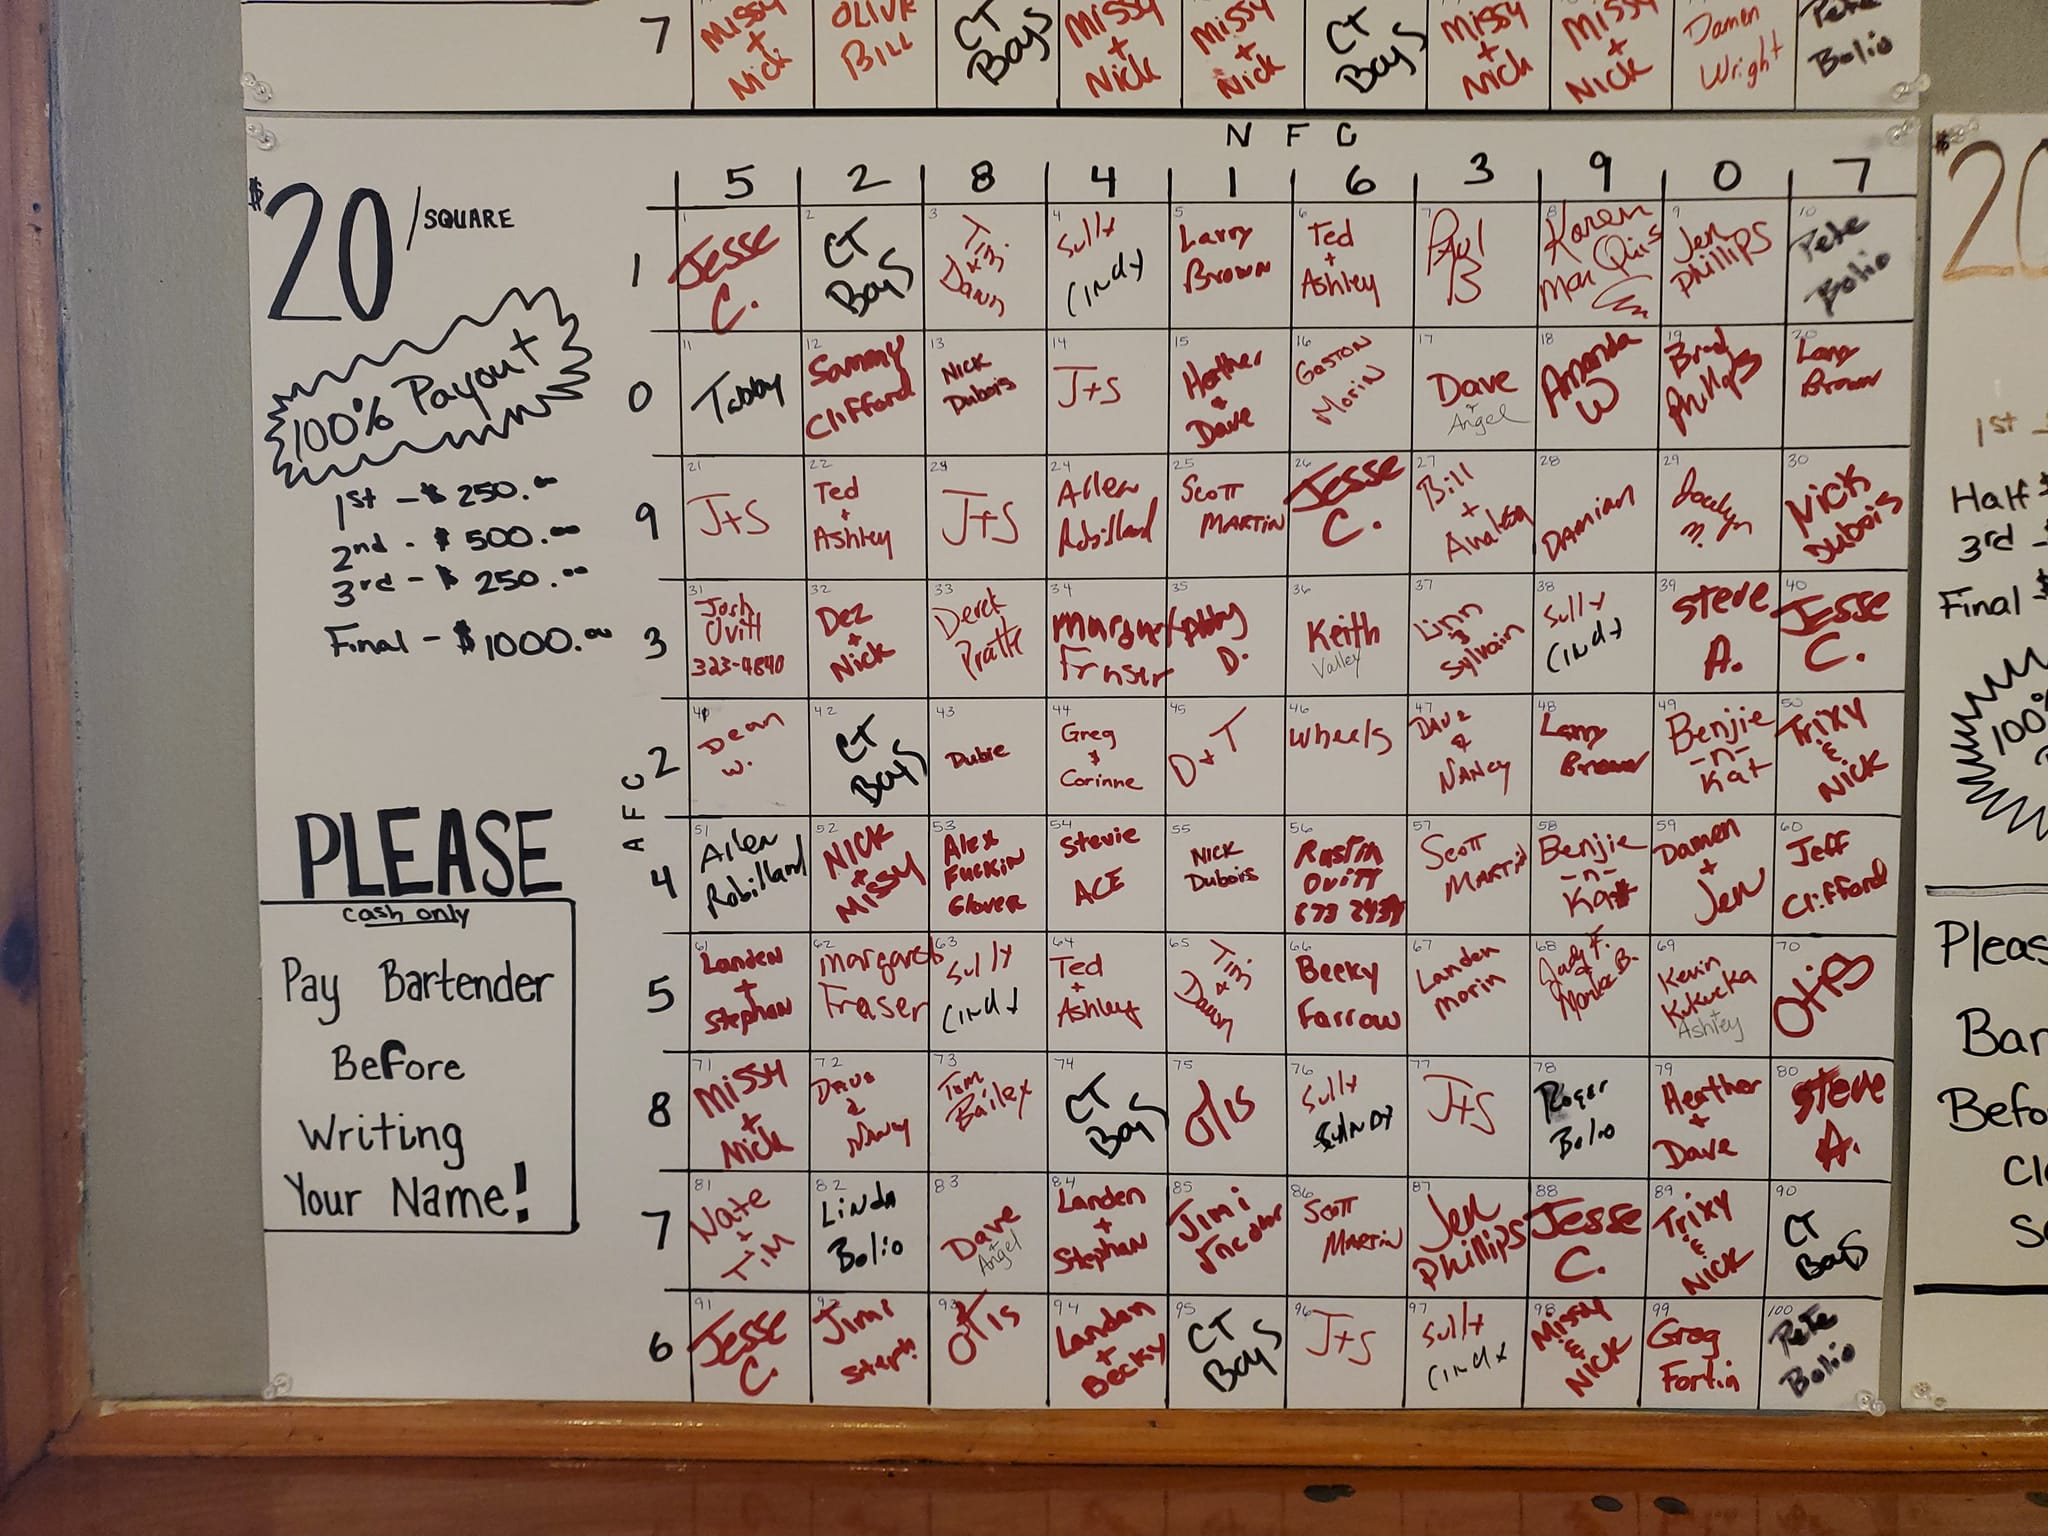 7 Missy + Nick OLIVR BILL CT Boys Missy + Nick Missy + Nick CT Boys Missy + Nick Missy + Nick Damen Wright Pete Bolio
N F C
$20/SQUARE
100% Payout
1st - $ 250.00
2nd - $ 500.00
3rd - $ 250.00
Final - $1000.00
PLEASE
cash only
Pay Bartender
Before
Writing
Your Name!
A F C
5 2 8 4 1 6 3 9 0 7
1
1 Jesse C.
2 CT Boys
3 Timi & Dawn
4 Sully Cindy
5 Larry Brown
6 Ted + Ashley
7 Paul B
8 Karen MarQuis
9 Jen Phillips
10 Pete Bolio
0
11 Tabby
12 Sammy Clifford
13 NICK Dubois
14 J+S
15 Heather & Dave
16 Gaston Morin
17 Dave + Angel
18 Amanda W
19 Brad Phillips
20 Larry Brown
9
21 J+S
22 Ted + Ashley
23 J+S
24 Allen Robillard
25 Scott MARTIN
26 Jesse C.
27 Bill +
28 DAMIAN
29
30 Nick Dubois
3
31 Josh Ovitt 323-4840
32 Dez + Nick
33 Derek Pratt
34 Margaret Fraser
35 D.
36 Keith Valley
37 Linn & Sylvain
38 Sully Cindy
39 Steve A.
40 Jesse C.
2
41 Dean W.
42 CT Boys
43 Dubie
44 Greg & Corinne
45 D+T
46 Wheels
47 DAVE & NANCY
48 Larry Brown
49 Benjie -n- Kat
50 Trixy & NICK
4
51 Allen Robillard
52 NICK + MISSY
53 Alex Fuckin Glover
54 Stevie ACE
55 NICK Dubois
56 Rustin Ovitt
57 Scott MARTIN
58 Benjie -n- Kat
59 Damen + Jen
60 Jeff Clifford
5
61 Landen + Stephan
62 Margaret Fraser
63 Sully Cindy
64 Ted + Ashley
65 Timi & Dawn
66 Becky Farrow
67 Landen Morin
68 Judy F. + B.
69 Kevin Kukucka + Ashley
70 OTIS
8
71 Missy + Nick
72 DAVE & NANCY
73 Tom Bailey
74 CT Boys
75 OTIS
76 Sully
77 J+S
78 Roger Bolio
79 Heather + Dave
80 Steve A.
7
81 Nate + TIM
82 Linda Bolio
83 Dave + Angel
84 Landen + Stephan
85 Jimi
86 Scott MARTIN
87 Jen Phillips
88 Jesse C.
89 Trixy & NICK
90 CT Boys
6
91 Jesse C.
92 Jimi Steph
93 OTIS
94 Landen + Becky
95 CT Boys
96 J+S
97 Sully Cindy
98 Missy & NICK
99 Greg Fortin
100 PETE Bolio
$20
1st -
Half $
3rd -
Final $
100%
Pleas
Bar
Befo
Cl